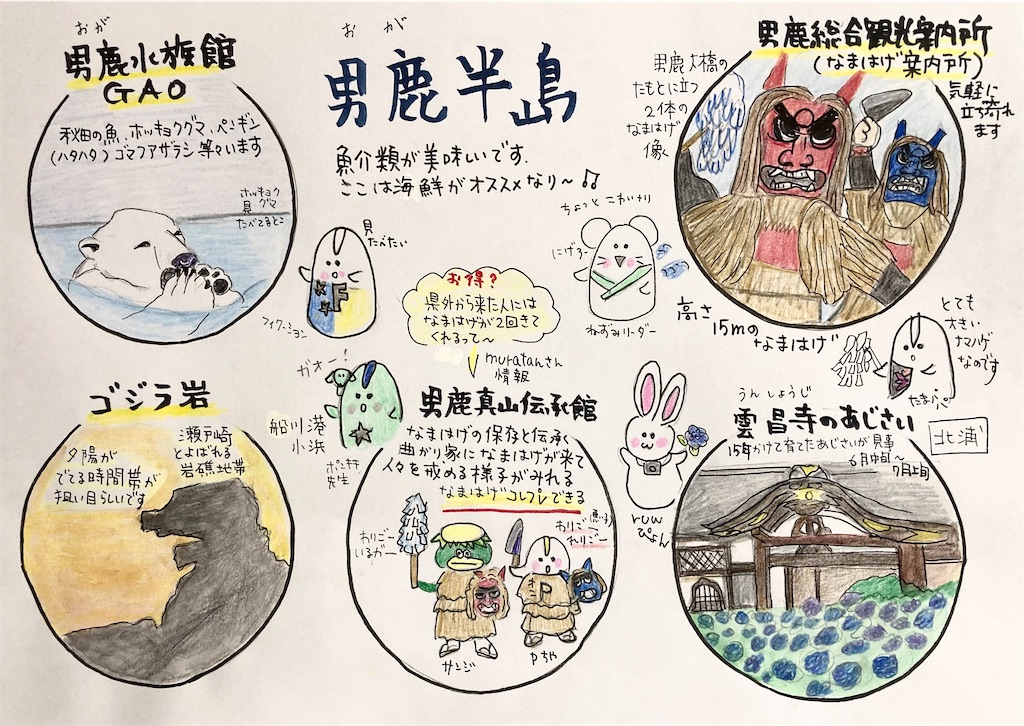 おが
男鹿水族館
GAO
秋田の魚、ホッキョクグマ、ペンギン
(ハタハタ)ゴマフアザラシ 等々います
ホッキョク
グマ
貝
たべてるとこ
おが
男鹿半島
魚介類が美味いです.
ここは海鮮がオススメなり〜♫
男鹿総合観光案内所
(なまはげ案内所)
気軽に
立ち寄れ
ます
男鹿大橋の
たもとに立つ
2体の
なまはげ
像
高さ
15mの
なまはげ
貝
たべたい
F
フィクーション
お得?
県外から来た人には
なまはげが2回きて
くれるって〜
muratanさん
情報
ちょっとこわいナリ
にげろー
ねずみリーダー
とても
大きい
ナマハゲ
なのです
たまパパ
ゴジラ岩
夕陽が
でてる時間帯が
狙い目らしいです
瀬戸崎
とよばれる
岩礁地帯
ガオー!
船川港
小浜
ポンキチ
先生
男鹿真山伝承館
なまはげの保存と伝承
曲がり家になまはげが来て
人々を戒める様子がみれる
なまはげコスプレできる
わりごー
いるがー
わりごー
(悪い子)
わりごー
P
サンジ
Pちゃ
ruw
ぴょん
うんしょうじ
雲昌寺のあじさい
15年かけて育てたあじさいが見事
6月中旬〜
7月上旬
北浦